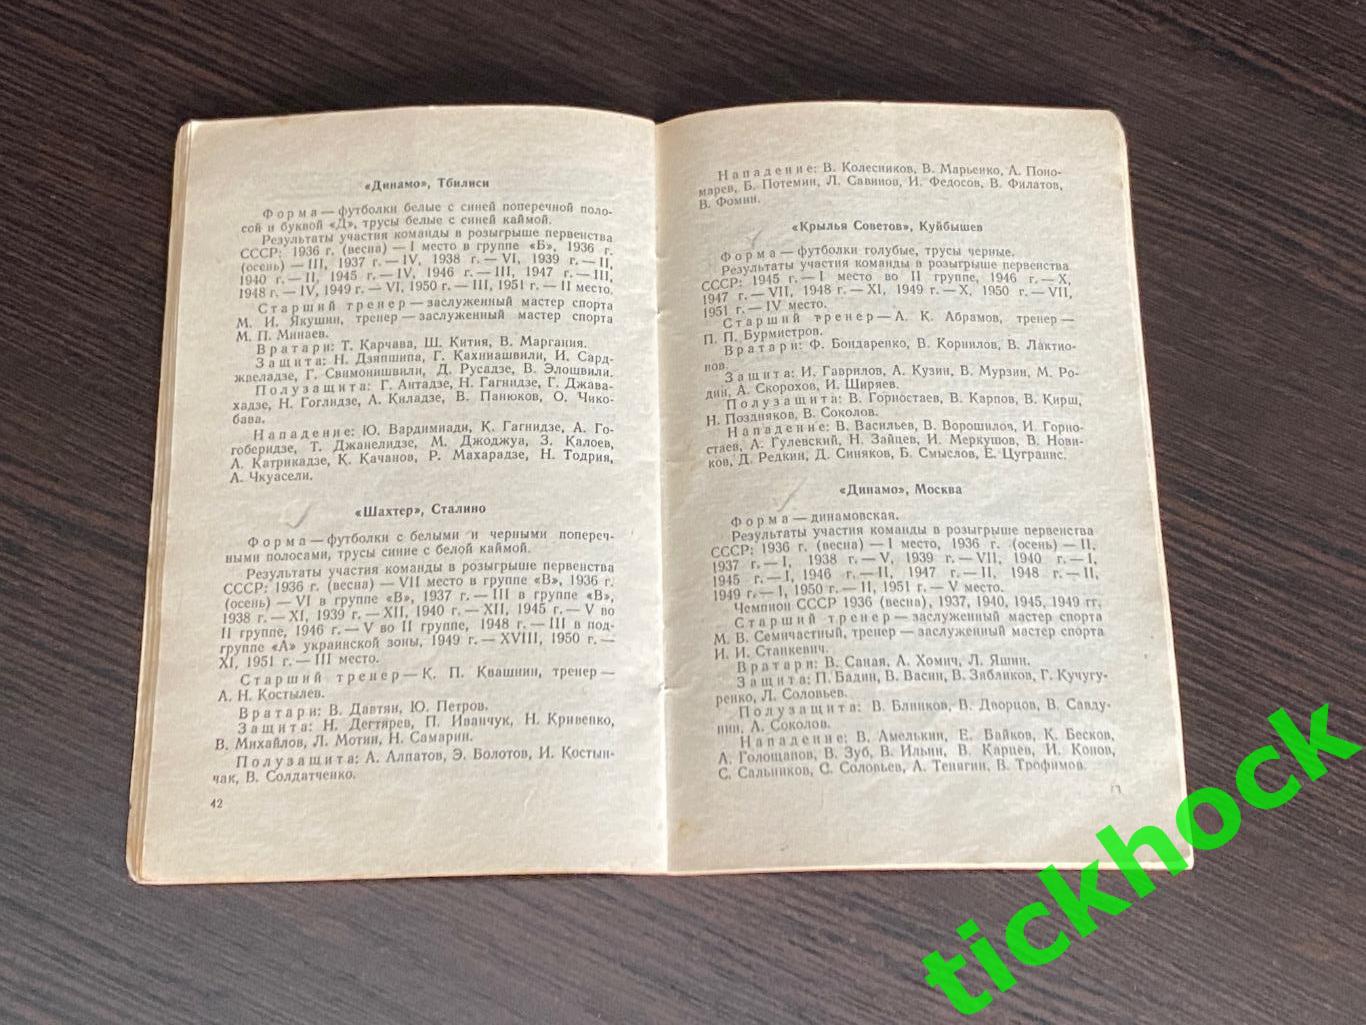 «Динамо», Тбилиси
Форма — футболки белые с синей поперечной поло-
сой и буквой «Д», трусы белые с синей каймой.
Результаты участия команды в розыгрыше первенства
СССР: 1936 г. (весна) — I место в группе «Б», 1936 г.
(осень) — III, 1937 г. — IV, 1938 г. — VI, 1939 г. — II,
1940 г. — II, 1945 г. — IV, 1946 г. — III, 1947 г. — III,
1948 г. — IV, 1949 г. — VI, 1950 г. — III, 1951 г. — II место.
Старший тренер — заслуженный мастер спорта
М. И. Якушин, тренер — заслуженный мастер спорта
М. П. Минаев.
Вратари: Т. Карчава, Ш. Кития, В. Маргания.
Защита: Н. Дзяпшипа, Г. Кахниашвили, И. Сард-
жвеладзе, Г. Свимонишвили, Д. Русадзе, В. Элошвили.
Полузащита: Г. Антадзе, Н. Гагнидзе, Г. Джава-
хадзе, Н. Гоглидзе, А. Киладзе, В. Панюков, О. Чико-
бава.
Нападение: Ю. Вардимиади, К. Гагнидзе, А. Го-
гоберидзе, Т. Джанелидзе, М. Джоджуа, З. Калоев,
А. Катрикадзе, К. Качанов, Р. Махарадзе, Н. Тодрия,
А. Чкуасели.
«Шахтер», Сталино
Форма — футболки с белыми и черными попереч-
ными полосами, трусы синие с белой каймой.
Результаты участия команды в розыгрыше первенства
СССР: 1936 г. (весна) — VII место в группе «В», 1936 г.
(осень) — VI в группе «В», 1937 г. — III в группе «В»,
1938 г. — XI, 1939 г. — XII, 1940 г. — XII, 1945 г. — V во
II группе, 1946 г. — V во II группе, 1948 г. — III в под-
группе «А» украинской зоны, 1949 г. — XVIII, 1950 г. —
XI, 1951 г. — III место.
Старший тренер — К. П. Квашнин, тренер —
А. Н. Костылев.
Вратари: В. Давтян, Ю. Петров.
Защита: Н. Дегтярев, П. Иванчук, Н. Кривенко,
В. Михайлов, Л. Мотин, Н. Самарин.
Полузащита: А. Алпатов, Э. Болотов, И. Костын-
чак, В. Солдатченко.
42
Нападение: В. Колесников, В. Марьенко, А. Поно-
марев, Б. Потемин, Л. Савинов, И. Федосов, В. Филатов,
В. Фомин.
«Крылья Советов», Куйбышев
Форма — футболки голубые, трусы черные.
Результаты участия команды в розыгрыше первенства
СССР: 1945 г. — I место во II группе, 1946 г. — X,
1947 г. — VII, 1948 г. — XI, 1949 г. — X, 1950 г. — VII,
1951 г. — IV место.
Старший тренер — А. К. Абрамов, тренер —
П. П. Бурмистров.
Вратари: Ф. Бондаренко, В. Корнилов, В. Лактио-
нов.
Защита: И. Гаврилов, А. Кузин, В. Мурзин, М. Ро-
дин, А. Скорохов, И. Ширяев.
Полузащита: В. Горностаев, В. Карпов, В. Кирш,
Н. Поздняков, В. Соколов.
Нападение: В. Васильев, В. Ворошилов, И. Горно-
стаев, А. Гулевский, Н. Зайцев, И. Меркушов, В. Нови-
ков, Д. Редкин, Д. Синяков, Б. Смыслов, Е. Цугранис.
«Динамо», Москва
Форма — динамовская.
Результаты участия команды в розыгрыше первенства
СССР: 1936 г. (весна) — I место, 1936 г. (осень) — II,
1937 г. — I, 1938 г. — V, 1939 г. — VII, 1940 г. — I,
1945 г. — I, 1946 г. — II, 1947 г. — II, 1948 г. — II,
1949 г. — I, 1950 г. — II, 1951 г. — V место.
Чемпион СССР 1936 (весна), 1937, 1940, 1945, 1949 гг.
Старший тренер — заслуженный мастер спорта
М. В. Семичастный, тренер — заслуженный мастер спорта
И. И. Станкевич.
Вратари: В. Саная, А. Хомич, Л. Яшин.
Защита: П. Бадин, В. Васин, В. Зябликов, Г. Кучугу-
ренко, Л. Соловьев.
Полузащита: В. Блинков, В. Дворцов, В. Савду-
нин, А. Соколов.
Нападение: В. Амелькин, Е. Байков, К. Бесков,
А. Голощапов, В. Зуб, В. Ильин, В. Карцев, И. Конов,
С. Сальников, С. Соловьев, А. Тенягин, В. Трофимов.
tickhock